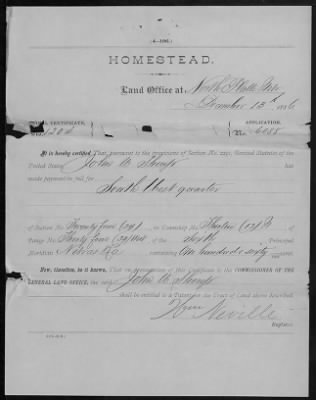 (4—196.)
HOMESTEAD.
Land Office at North Platte Neb.
December 13th, 1886
FINAL CERTIFICATE,
APPLICATION,
No. 1204
No. 6088
It is hereby certified That, pursuant to the provisions of Section No. 2291, Revised Statutes of the
United States, John W. has
made payment in full for
South West quarter
of Section No. Twenty four (24), in Township No. (13) N
of Range No. Thirty four (34) West of the Sixth Principal
Meridian Nebraska containing One hundred & sixty acres.
Now, therefore, be it known, That on presentation of this Certificate to the COMMISSIONER OF THE
GENERAL LAND OFFICE, the said John W.
shall be entitled to a Patent for the Tract of Land above described.
Wm Neville
Register.